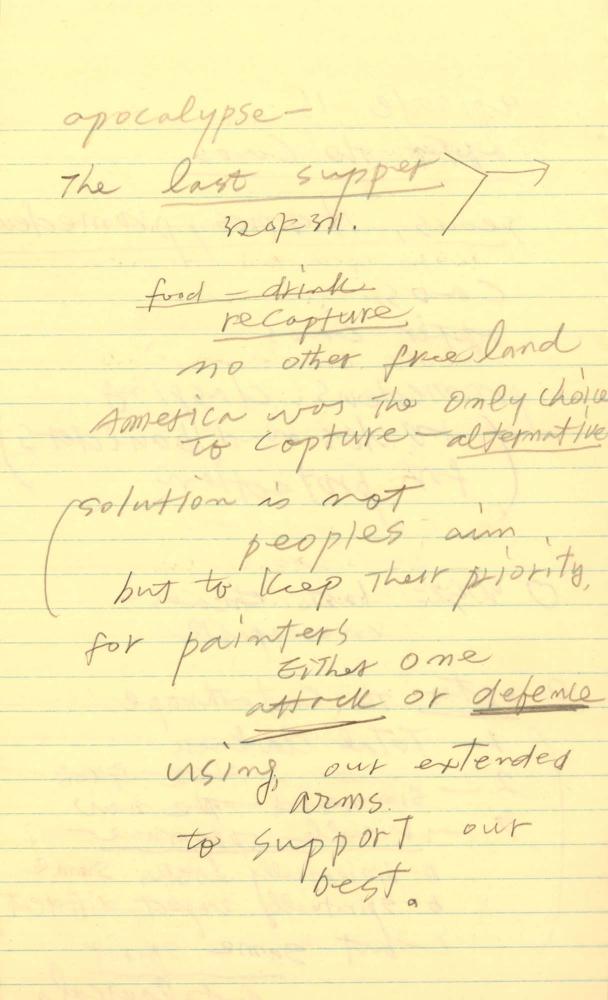 apocalypse—
The last supper
food = drink
recapture
no other free land
America was the only choice
to capture — alternative
(solution is not
peoples aim
but to keep their priority,
for painters
Either one
attack or defence
using our extended
arms.
to support our
best.